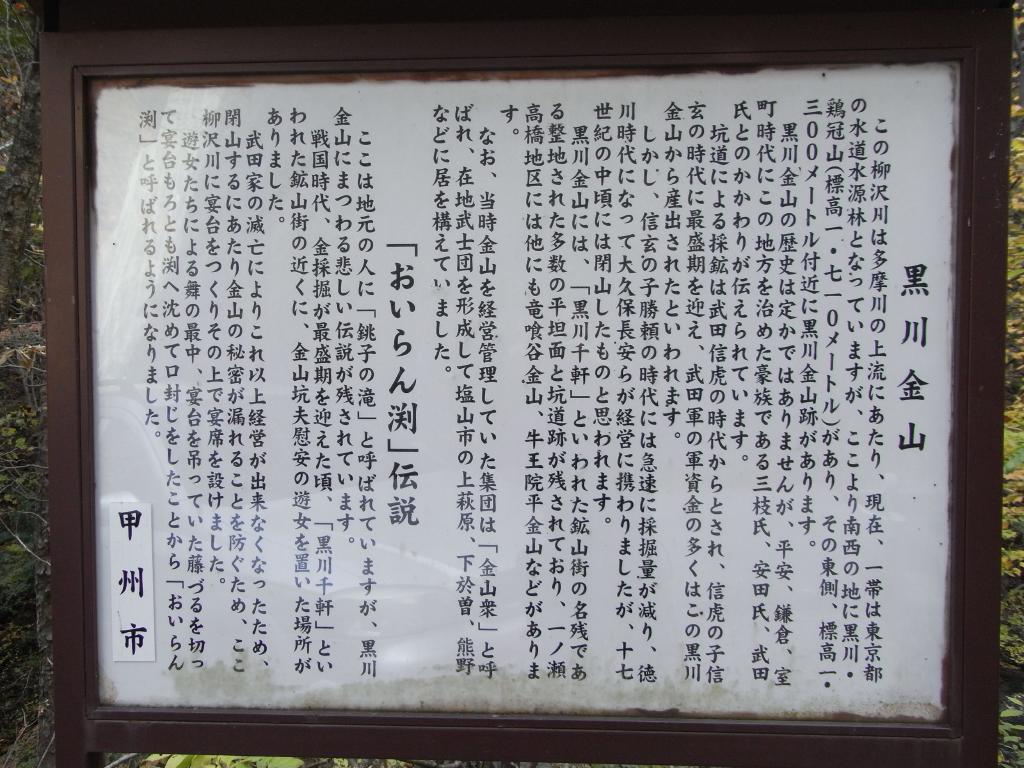 黒川金山
この柳沢川は多摩川の上流にあたり、現在、一帯は東京都
の水道水源林となっていますが、ここより南西の地に黒川・
鶏冠山(標高一・七一〇メートル)があり、その東側、標高一・
三〇〇メートル付近に黒川金山跡があります。
黒川金山の歴史は定かではありませんが、平安、鎌倉、室
町時代にこの地方を治めた豪族である三枝氏、安田氏、武田
氏とのかかわりが伝えられています。
坑道による採鉱は武田信虎の時代からとされ、信虎の子信
玄の時代に最盛期を迎え、武田軍の軍資金の多くはこの黒川
金山から産出されたといわれます。
しかし、信玄の子勝頼の時代には急速に採掘量が減り、徳
川時代になって大久保長安らが経営に携わりましたが、十七
世紀の中頃には閉山したものと思われます。
黒川金山には、「黒川千軒」といわれた鉱山街の名残であ
る整地された多数の平坦面と坑道跡が残されており、一ノ瀬
高橋地区には他にも竜喰谷金山、牛王院平金山などがありま
す。
なお、当時金山を経営管理していた集団は「金山衆」と呼
ばれ、在地武士団を形成して塩山市の上萩原、下於曽、熊野
などに居を構えていました。
「おいらん渕」伝説
ここは地元の人に「銚子の滝」と呼ばれていますが、黒川
金山にまつわる悲しい伝説が残されています。
戦国時代、金採掘が最盛期を迎えた頃、「黒川千軒」とい
われた鉱山街の近くに、金山坑夫慰安の遊女を置いた場所が
ありました。
武田家の滅亡によりこれ以上経営が出来なくなったため、
閉山するにあたり金山の秘密が漏れることを防ぐため、ここ
柳沢川に宴台をつくりその上で宴席を設けました。
遊女たちによる舞の最中、宴台を吊っていた藤づるを切っ
て宴台もろとも渕へ沈めて口封じをしたことから「おいらん
渕」と呼ばれるようになりました。
甲州市